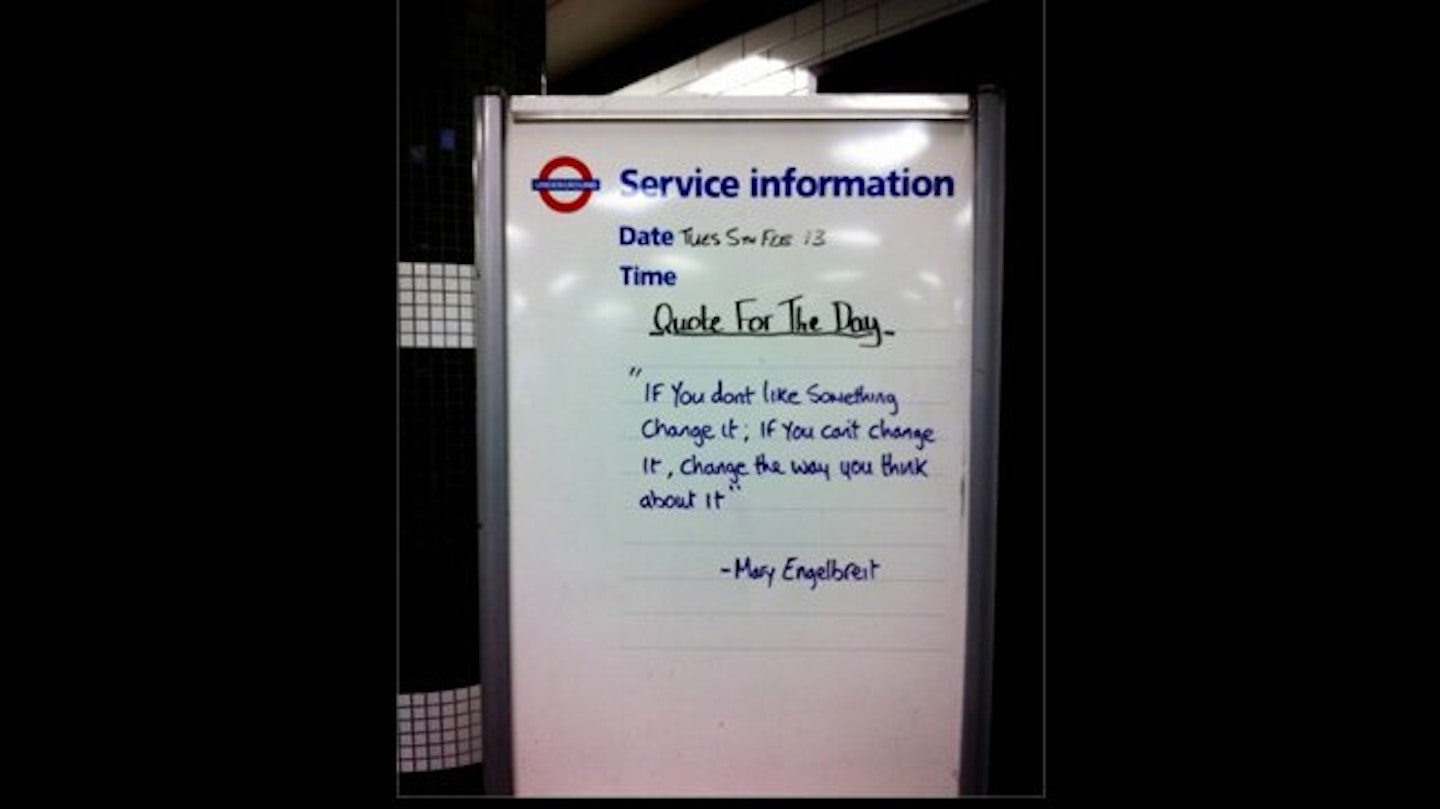 UNDERGROUND
Service information
Date Tues 5TH FEB 13
Time
Quote For The Day
"IF You dont like Something
Change It; IF You can't change
It, change the way you think
about It"
- Mary Engelbreit